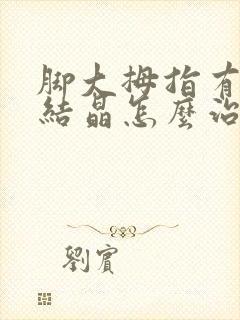 脚大拇指有
結晶怎麼治
劉賓